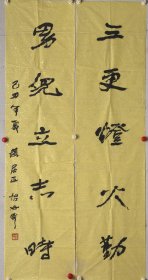 三更燈火勤
男兒立志時
己丑年夏